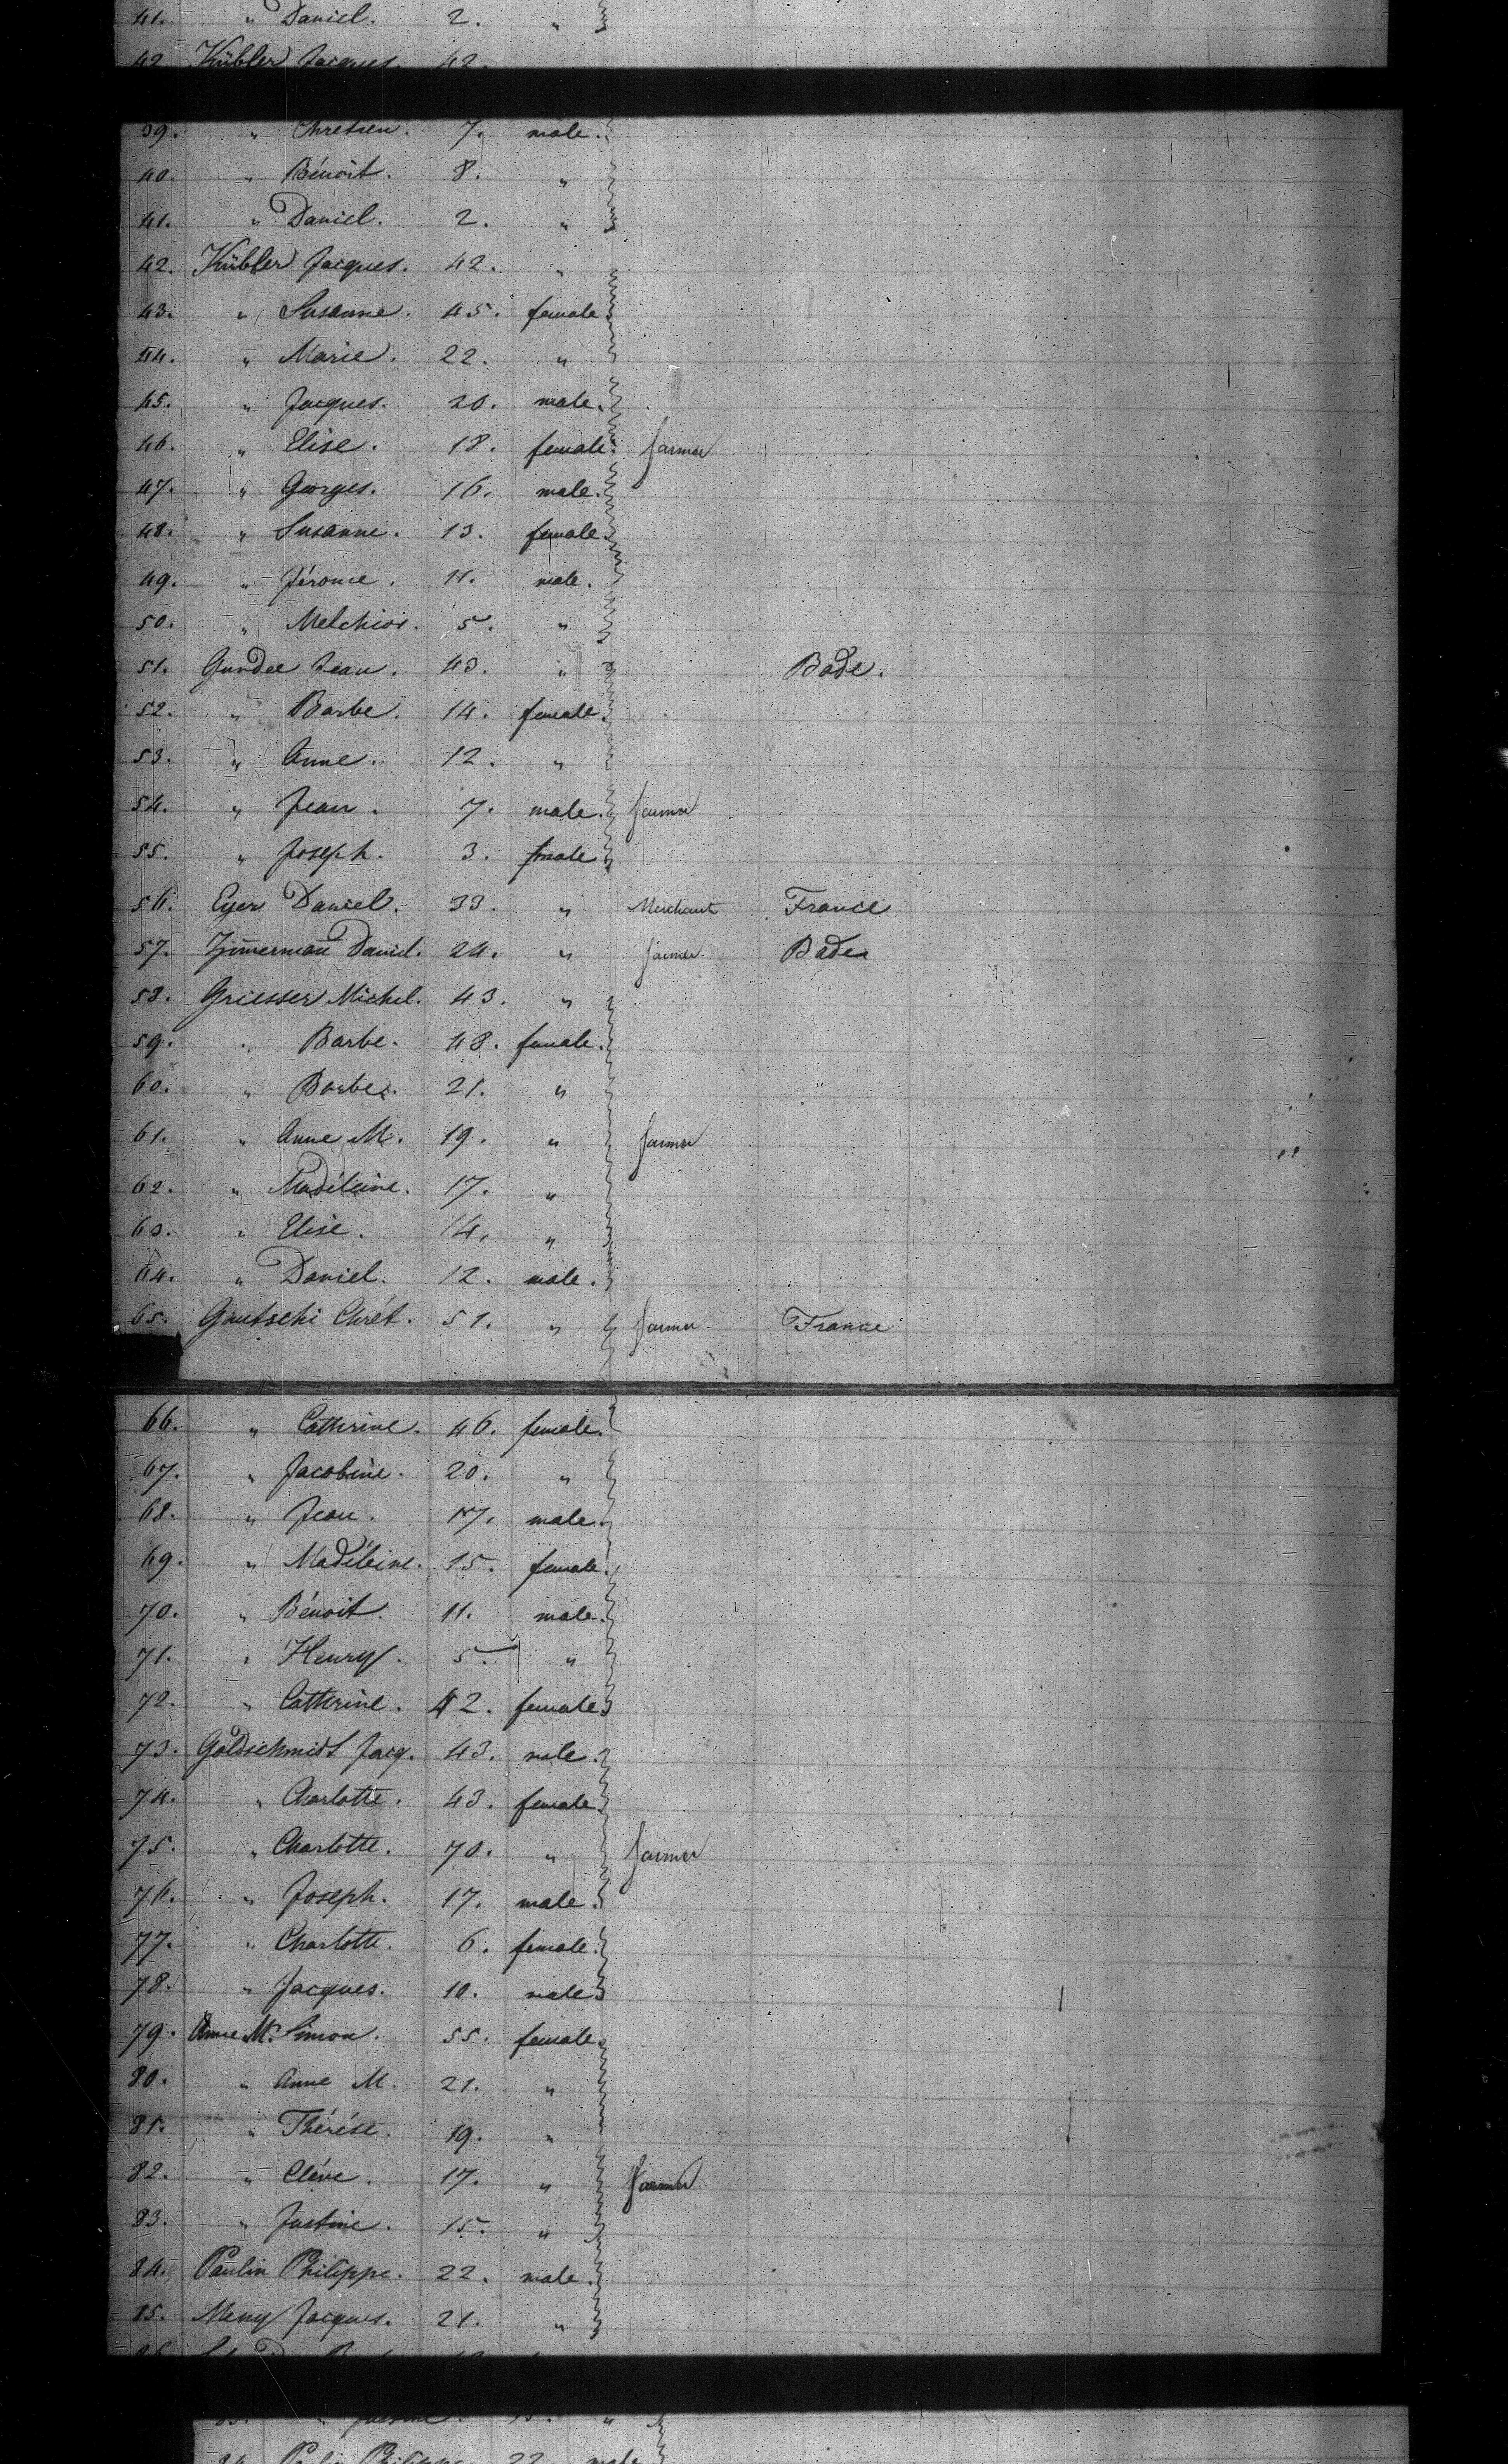 41. " Daniel. 2. "
42 Kübler Jacques. 42.
39. " Chretien. 7. male.
40. " Bénoit. 8. "
41. " Daniel. 2. "
42. Kübler Jacques. 42. "
43. " Susanne. 45. female.
44. " Marie. 22. "
45. " Jacques. 20. male.
46. " Elise. 18. female. farmer
47. " Georges. 16. male.
48. " Susanne. 13. female.
49. " Jérome. 11. male.
50. " Melchior. 5. "
51. Jean. 43. " Bade.
52. " Barbe. 14. female.
53. " Anne. 12. "
54. " Jean. 7. male. farmer
55. " Joseph. 3. male
56. Eyer Daniel. 33. " Merchant France
57. Zimerman Daniel. 24. " farmer Baden
58. Griesser Michel. 43. "
59. " Barbe. 48. female.
60. " Barbe. 21. "
61. " Anne M. 19. " farmer
62. " Madéleine. 17. "
63. " Elise. 14. "
64. " Daniel. 12. male.
65. Gautschi Chrét. 51. " farmer France
66. " Cathrine. 46. female.
67. " Jacobine. 20. "
68. " Jean. 17. male.
69. " Madéleine. 15. female.
70. " Bénoit. 11. male.
71. " Henry. 5. "
72. " Cathrine. 42. female.
73. Goldschmidt Jacq. 43. male.
74. " Charlotte. 43. female.
75. " Charlotte. 70. " farmer
76. " Joseph. 17. male.
77. " Charlotte. 6. female.
78. " Jacques. 10. male.
79. Anne M. Simon. 55. female.
80. " Anne M. 21. "
81. " Thérése. 19. "
82. " 17. " farmer
83. " Justine. 15. "
84. Paulin Philippe. 22. male.
85. Meny Jacques. 21. "
84. Paulin Philippe 22. male